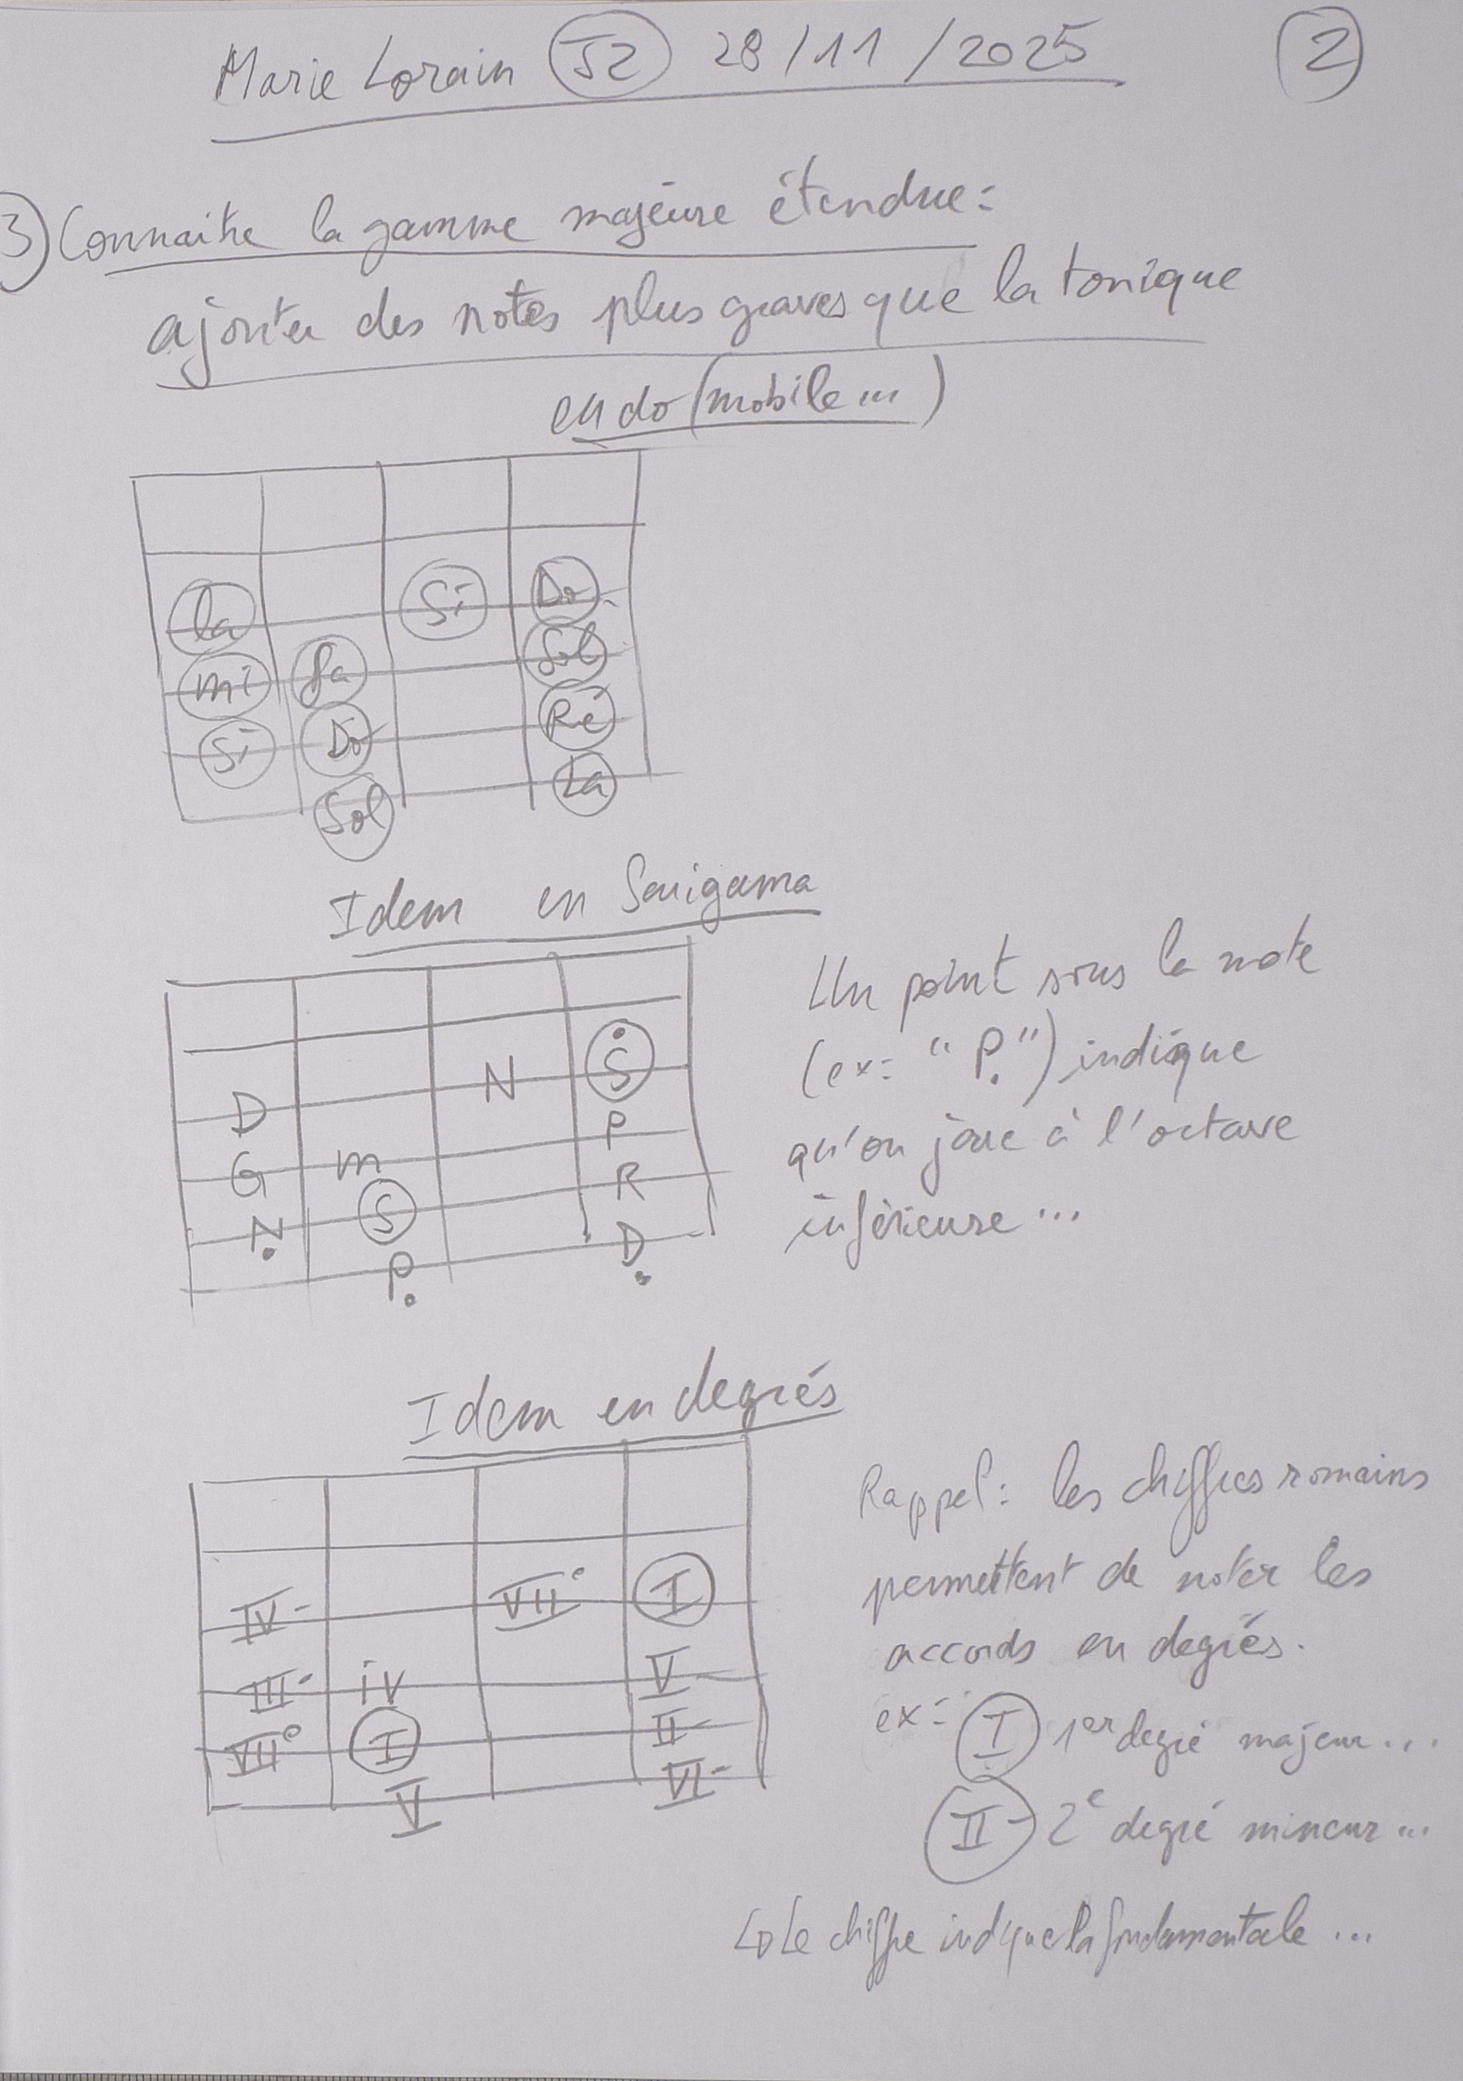 Marie Lorain J2 28/11/2025 2
3) Connaitre la gamme majeure étendue :
ajouter des notes plus graves que la tonique
en do (mobile ...)
la Si Do
mi fa Sol
Si Do Ré
Sol La
Idem en Sarigama
N Ṡ
D P
G m R
Ṇ S Ḍ
P̣
Un point sous la note
(ex: "P̣") indique
qu'on joue à l'octave
inférieure ...
Idem en degrés
IV- VII° I
III- iv V-
VII° I II-
V VI-
Rappel : les chiffres romains
permettent de noter les
accords en degrés.
ex : I 1er degré majeur ...
II- 2e degré mineur ...
Le chiffre indique la fondamentale ...